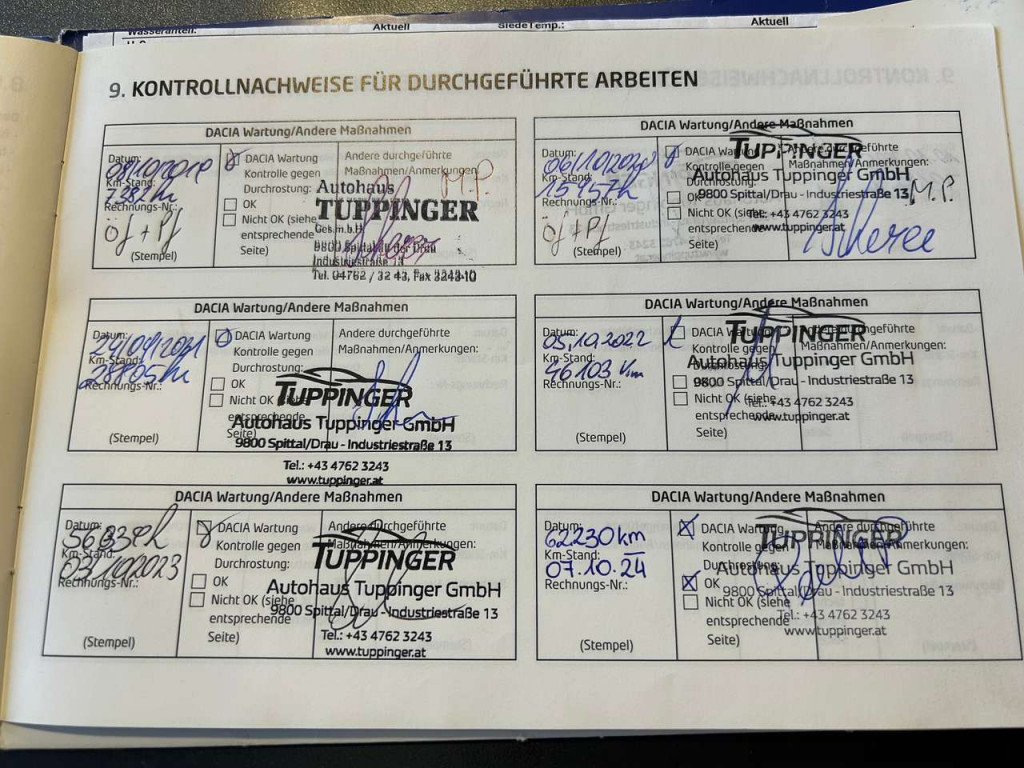 Wasseranteil:
Aktuell
SiedeTemp.:
Aktuell
9. KONTROLLNACHWEISE FÜR DURCHGEFÜHRTE ARBEITEN
DACIA Wartung/Andere Maßnahmen
Datum:
Km-Stand:
Rechnungs-Nr.:
öf + Pf
(Stempel)
DACIA Wartung
Kontrolle gegen
Durchrostung:
OK
Nicht OK (siehe
entsprechende
Seite)
Andere durchgeführte
Maßnahmen/Anmerkungen:
M.P.
Autohaus
TUPPINGER
Ges.m.b.H.
Industriestraße 13
Tel. 04762 / 32 43, Fax 3243-10
DACIA Wartung/Andere Maßnahmen
Datum: 06/10/2020
Km-Stand: 15957h
Rechnungs-Nr.:
öf + Pf
(Stempel)
DACIA Wartung
Kontrolle gegen
Durchrostung:
OK
Nicht OK (siehe
entsprechende
Seite)
Andere durchgeführte
Maßnahmen/Anmerkungen:
M.P.
TUPPINGER
Autohaus Tuppinger GmbH
9800 Spittal/Drau - Industriestraße 13
Tel.: +43 4762 3243
www.tuppinger.at
DACIA Wartung/Andere Maßnahmen
Datum:
Km-Stand:
Rechnungs-Nr.:
(Stempel)
DACIA Wartung
Kontrolle gegen
Durchrostung:
OK
Nicht OK (siehe
entsprechende
Seite)
Andere durchgeführte
Maßnahmen/Anmerkungen:
TUPPINGER
Autohaus Tuppinger GmbH
9800 Spittal/Drau - Industriestraße 13
Tel.: +43 4762 3243
www.tuppinger.at
DACIA Wartung/Andere Maßnahmen
Datum: 05.10.2022
Km-Stand: 46103 km
Rechnungs-Nr.:
(Stempel)
DACIA Wartung
Kontrolle gegen
Durchrostung:
OK
Nicht OK (siehe
entsprechende
Seite)
Andere durchgeführte
Maßnahmen/Anmerkungen:
TUPPINGER
Autohaus Tuppinger GmbH
9800 Spittal/Drau - Industriestraße 13
Tel.: +43 4762 3243
www.tuppinger.at
DACIA Wartung/Andere Maßnahmen
Datum:
Km-Stand: 03/10/2023
Rechnungs-Nr.:
(Stempel)
DACIA Wartung
Kontrolle gegen
Durchrostung:
OK
Nicht OK (siehe
entsprechende
Seite)
Andere durchgeführte
Maßnahmen/Anmerkungen:
TUPPINGER
Autohaus Tuppinger GmbH
9800 Spittal/Drau - Industriestraße 13
Tel.: +43 4762 3243
www.tuppinger.at
DACIA Wartung/Andere Maßnahmen
Datum:
62230 km
Km-Stand:
07.10.24
Rechnungs-Nr.:
(Stempel)
DACIA Wartung
Kontrolle gegen
Durchrostung:
OK
Nicht OK (siehe
entsprechende
Seite)
Andere durchgeführte
Maßnahmen/Anmerkungen:
TUPPINGER
Autohaus Tuppinger GmbH
9800 Spittal/Drau - Industriestraße 13
Tel.: +43 4762 3243
www.tuppinger.at